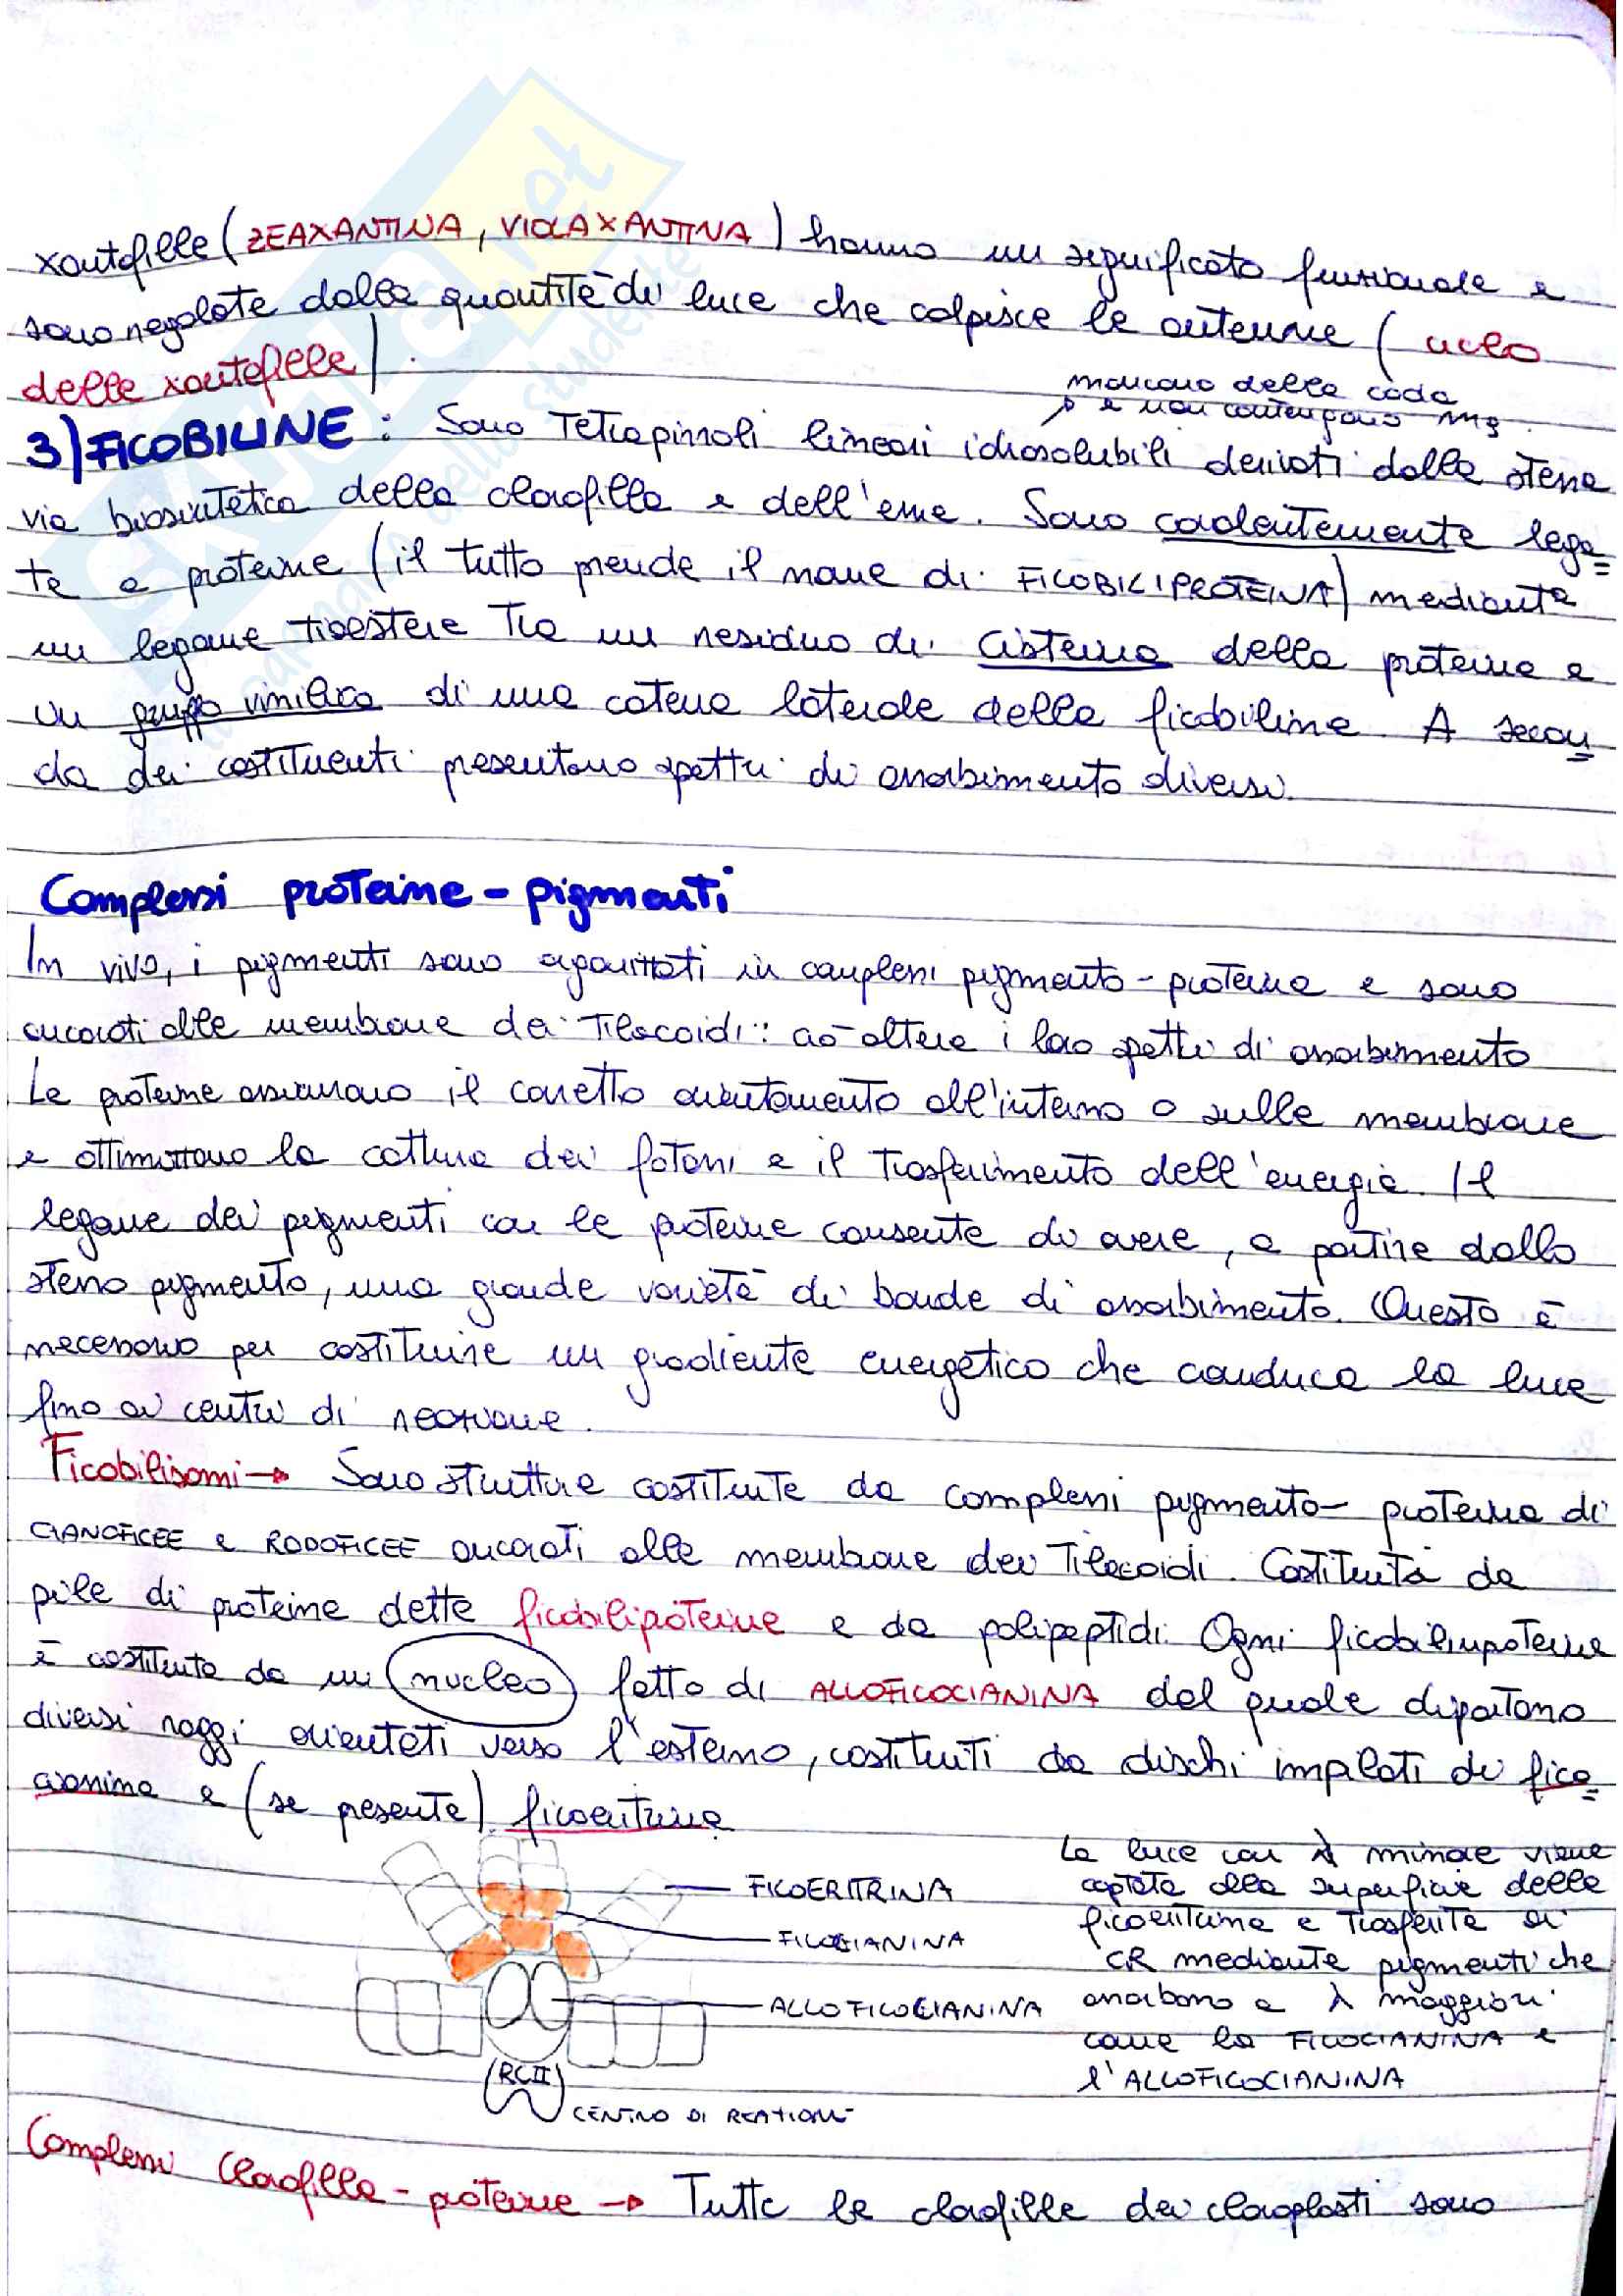 xantofille (ZEAXANTINA, VIOLAXANTINA) hanno un significato funzionale e
sono regolate dalla quantità di luce che colpisce le antenne (ciclo
delle xantofille).
mancano della coda
e non contengono Mg.
3) FICOBILINE: Sono Tetrapirroli lineari idrosolubili derivati dalla stessa
via biosintetica della clorofilla e dell'eme. Sono covalentemente lega=
te a proteine (il tutto prende il nome di FICOBILIPROTEINA) mediante
un legame tioestere tra un residuo di cisteina della proteina e
un gruppo vinilico di una catena laterale della ficobilina. A secon=
da dei costituenti presentano spettri di assorbimento diversi.
Complessi proteine-pigmenti
In vivo, i pigmenti sono organizzati in complessi pigmento-proteina e sono
ancorati alle membrane dei Tilacoidi: ciò altera i loro spettri di assorbimento
Le proteine assicurano il corretto orientamento all'interno o sulle membrane
e ottimizzano la cattura dei fotoni e il trasferimento dell'energia. Il
legame dei pigmenti con le proteine consente di avere, a partire dallo
stesso pigmento, una grande varietà di bande di assorbimento. Questo è
necessario per costituire un gradiente energetico che conduca la luce
fino ai centri di reazione.
Ficobilisomi → Sono strutture costituite da complessi pigmento-proteina di
CIANOFICEE e RODOFICEE ancorati alle membrane dei Tilacoidi. Costituiti da
pile di proteine dette ficobiliproteine e da polipeptidi. Ogni ficobiliproteina
è costituita da un nucleo fatto di ALLOFICOCIANINA dal quale dipartono
diversi raggi orientati verso l'esterno, costituiti da dischi impilati di fico=
cianina e (se presente) ficoeritrina
FICOERITRINA
FICOCIANINA
ALLOFICOCIANINA
(RCII)
CENTRO DI REAZIONE
La luce con λ minore viene
captata alla superficie delle
ficoeritrine e trasferita ai
CR mediante pigmenti che
assorbono a λ maggiori
come la FICOCIANINA e
l'ALLOFICOCIANINA
Complessi Clorofilla-proteine → Tutte le clorofille dei cloroplasti sono